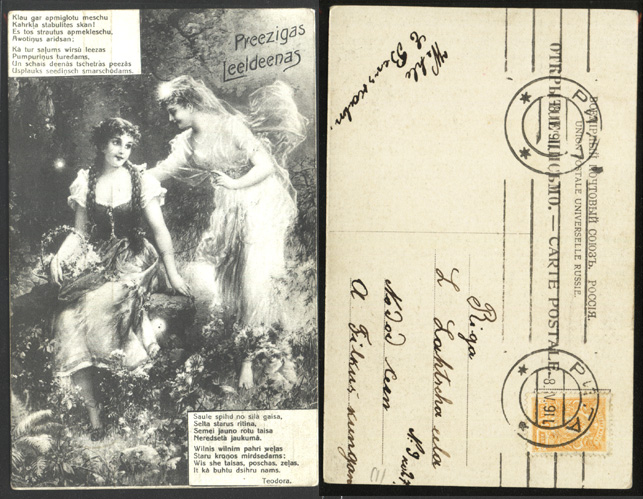 Klau gar apmiglotu meschu
Kahrkļa stabulites skan!
Es tos strautus apmekleschu,
Awotiņus aridsan;
Kā tur saļums wirsū leezas
Pumpuriņus turedams,
Un schais deenās tschetrās peezās
Usplauks seediņsch smarschodams.
Preezigas
Leeldeenas
Saule spihd no silā gaisa,
Selta starus ritina,
Semei jauno rotu taisa
Neredsetā jaukumā.
Wilnis wilnim pahri weļas
Staru kroņos mirdsedams;
Wis she taisas, poschas, zeļas,
It kā buhtu dsihru nams.
Teodora.
ВСЕМІРНЫЙ ПОЧТОВЫЙ СОЮЗЪ. РОССІЯ.
UNION POSTALE UNIVERSELLE RUSSIE.
ОТКРЫТОЕ ПИСЬМО. — CARTE POSTALE.
РИГА
РИГА
Riga
L
iela
A
kungam